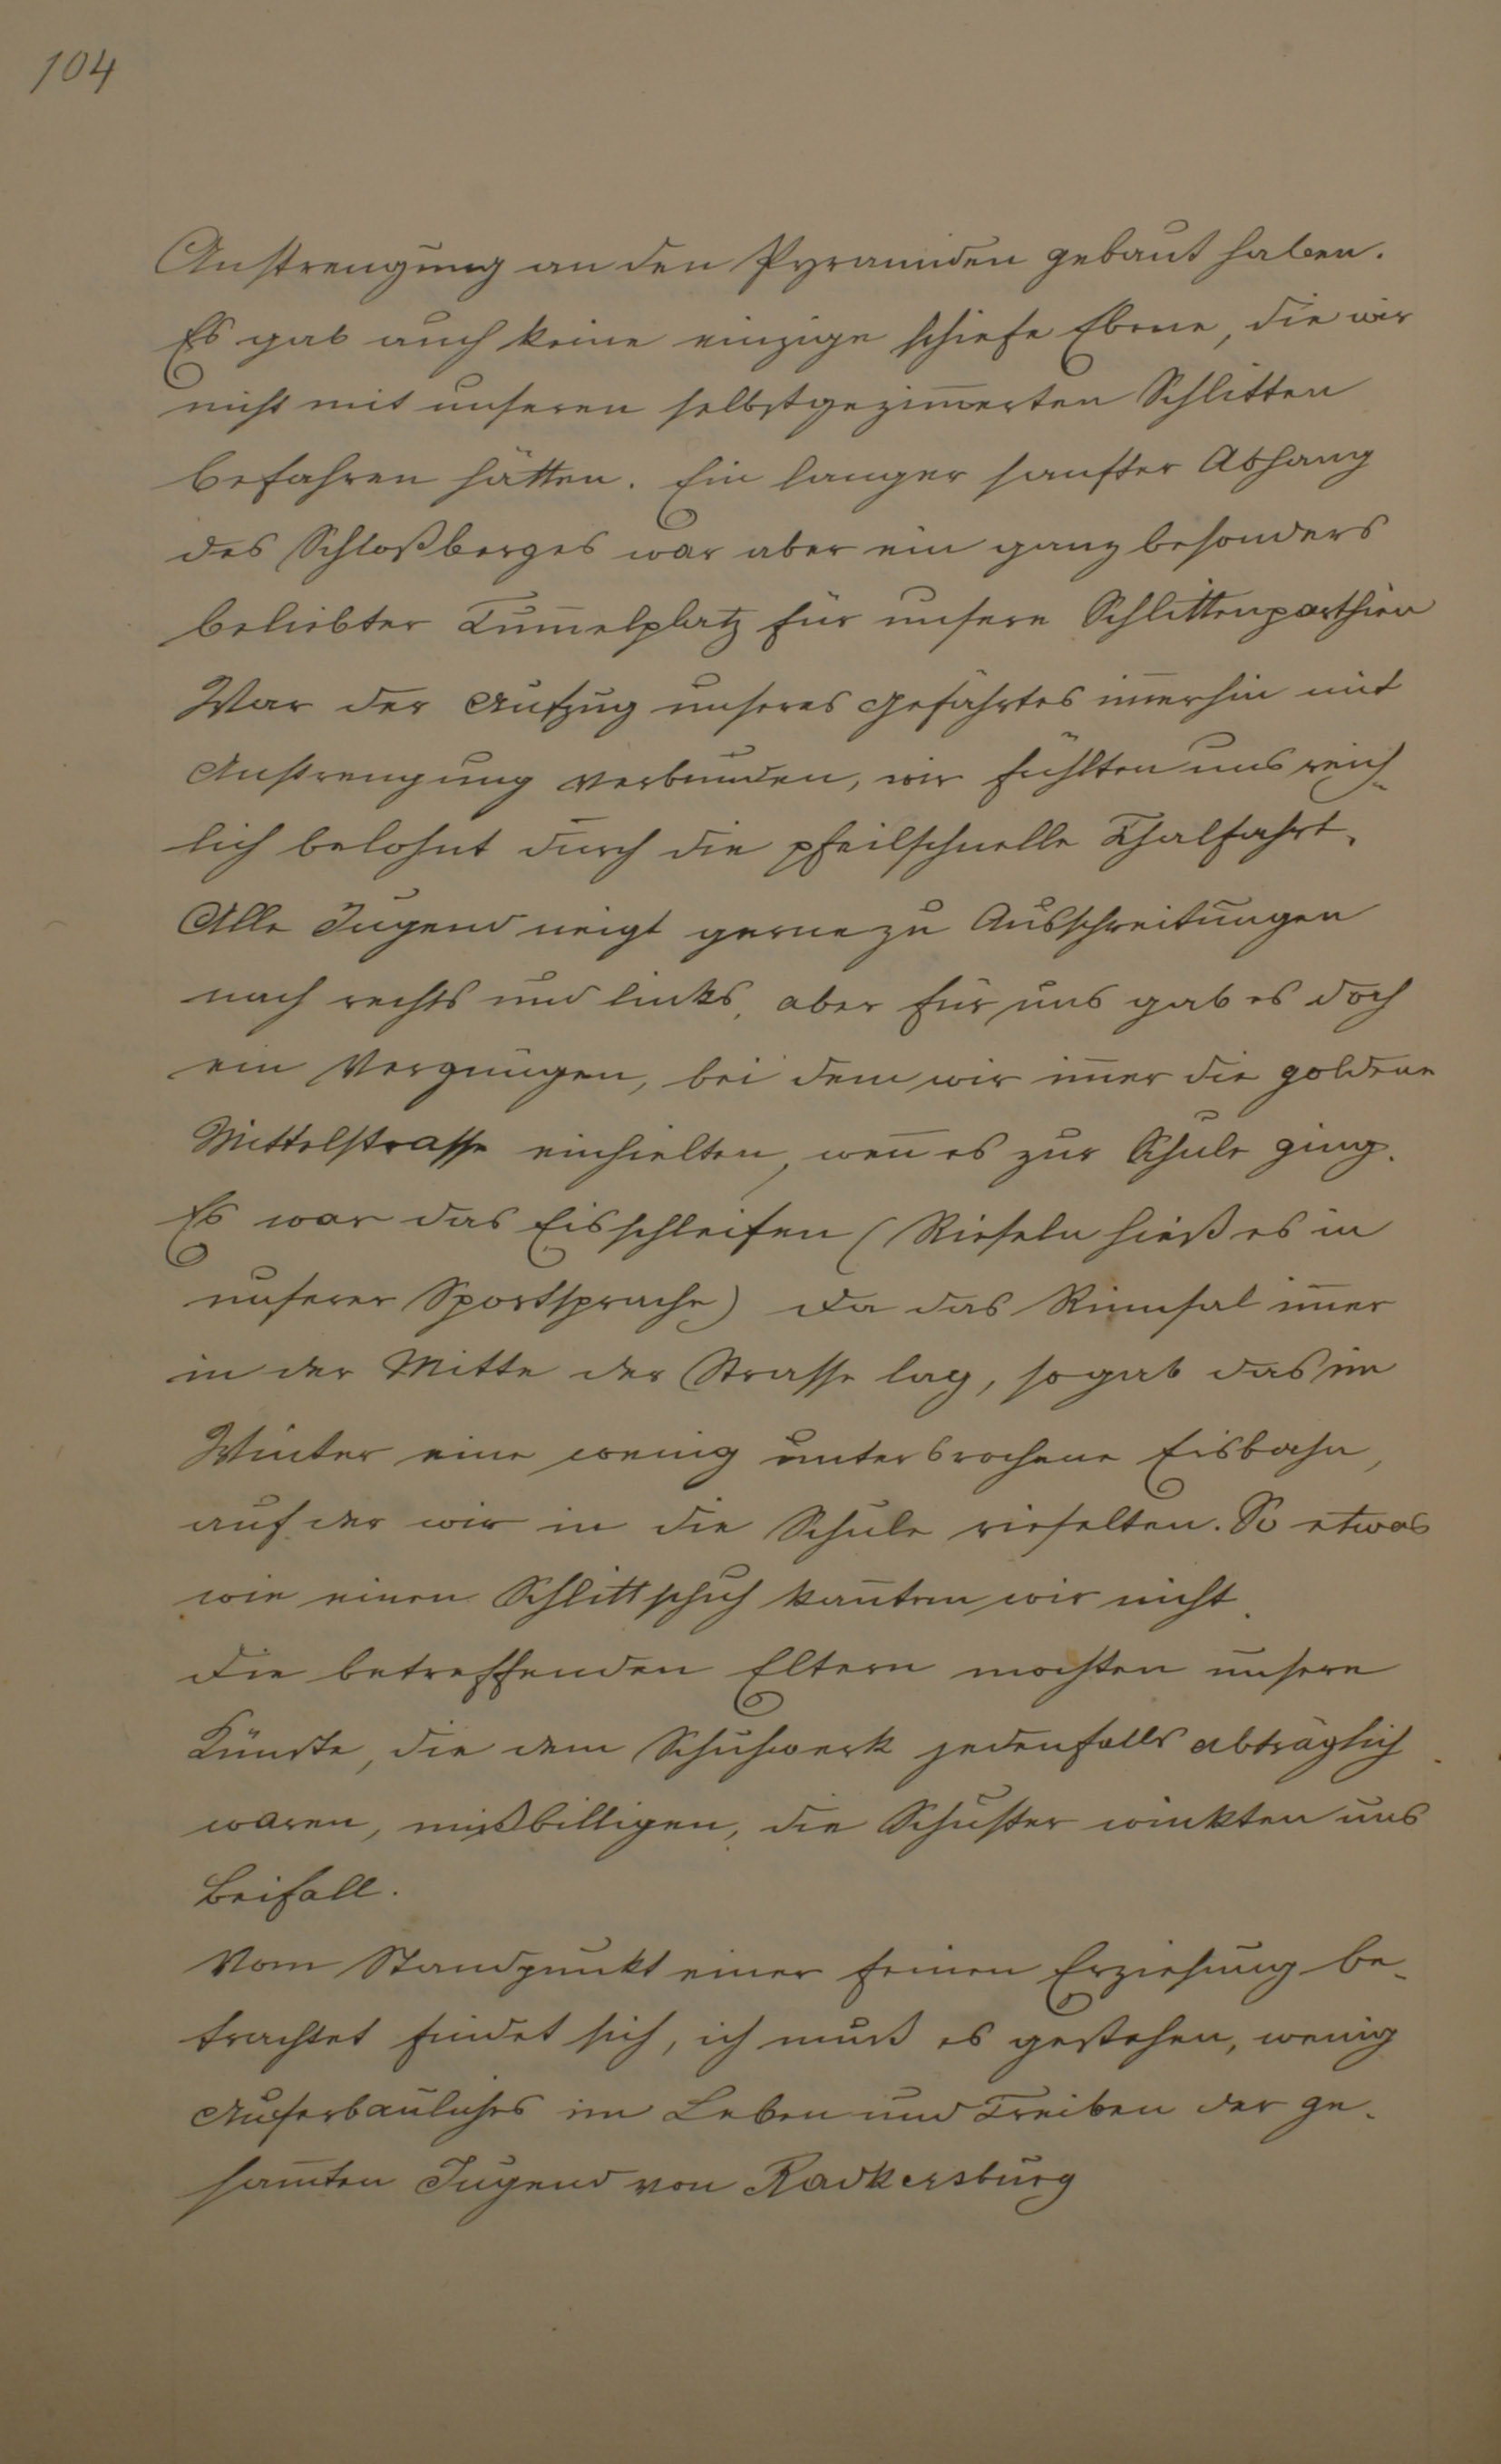 104
Anstrengung an den Pyramiden gebaut haben.
Es gab auch keine einzige schiefe Ebene, die wir
nicht mit unseren selbstgezim̅erten Schlitten
befahren hätten. Ein langer sanfter Abhang
des Schloßberges war aber ein ganz besonders
beliebter Tum̅elplatz für unsere Schlittenparthien
War der Aufzug unseres Gefährtes im̅erhin mit
Anstrengung verbunden, wir fühlten uns reich-
lich belohnt durch die pfeilschnelle Thalfahrt.
Alle Jugend neigt gerne zu Ausschreitungen
nach rechts und links, aber für uns gab es doch
ein Vergnügen, bei dem wir im̅er die goldene
Mittelstrasse einhielten, wen̅ es zur Schule ging.
Es war das Eisschleifen (Rieseln hieß es in
unserer Sportsprache) Da das Rinnsal im̅er
in der Mitte der Strasse lag, so gab das im
Winter eine wenig unterbrochene Eisbahn,
auf der wir in die Schule rieselten. So etwas
wie einen Schlittschuh kan̅ten wir nicht.
Die betreffenden Eltern mochten unsere
Künste, die dem Schuhwerk jedenfalls abträglich
waren, mißbilligen, die Schuster winkten uns
Beifall.
Vom Standpunkt einer feinen Erziehung be-
trachtet findet sich, ich muß es gestehen, wenig
Auferbauliches im Leben und Treiben der ge-
sam̅ten Jugend von Radkersburg